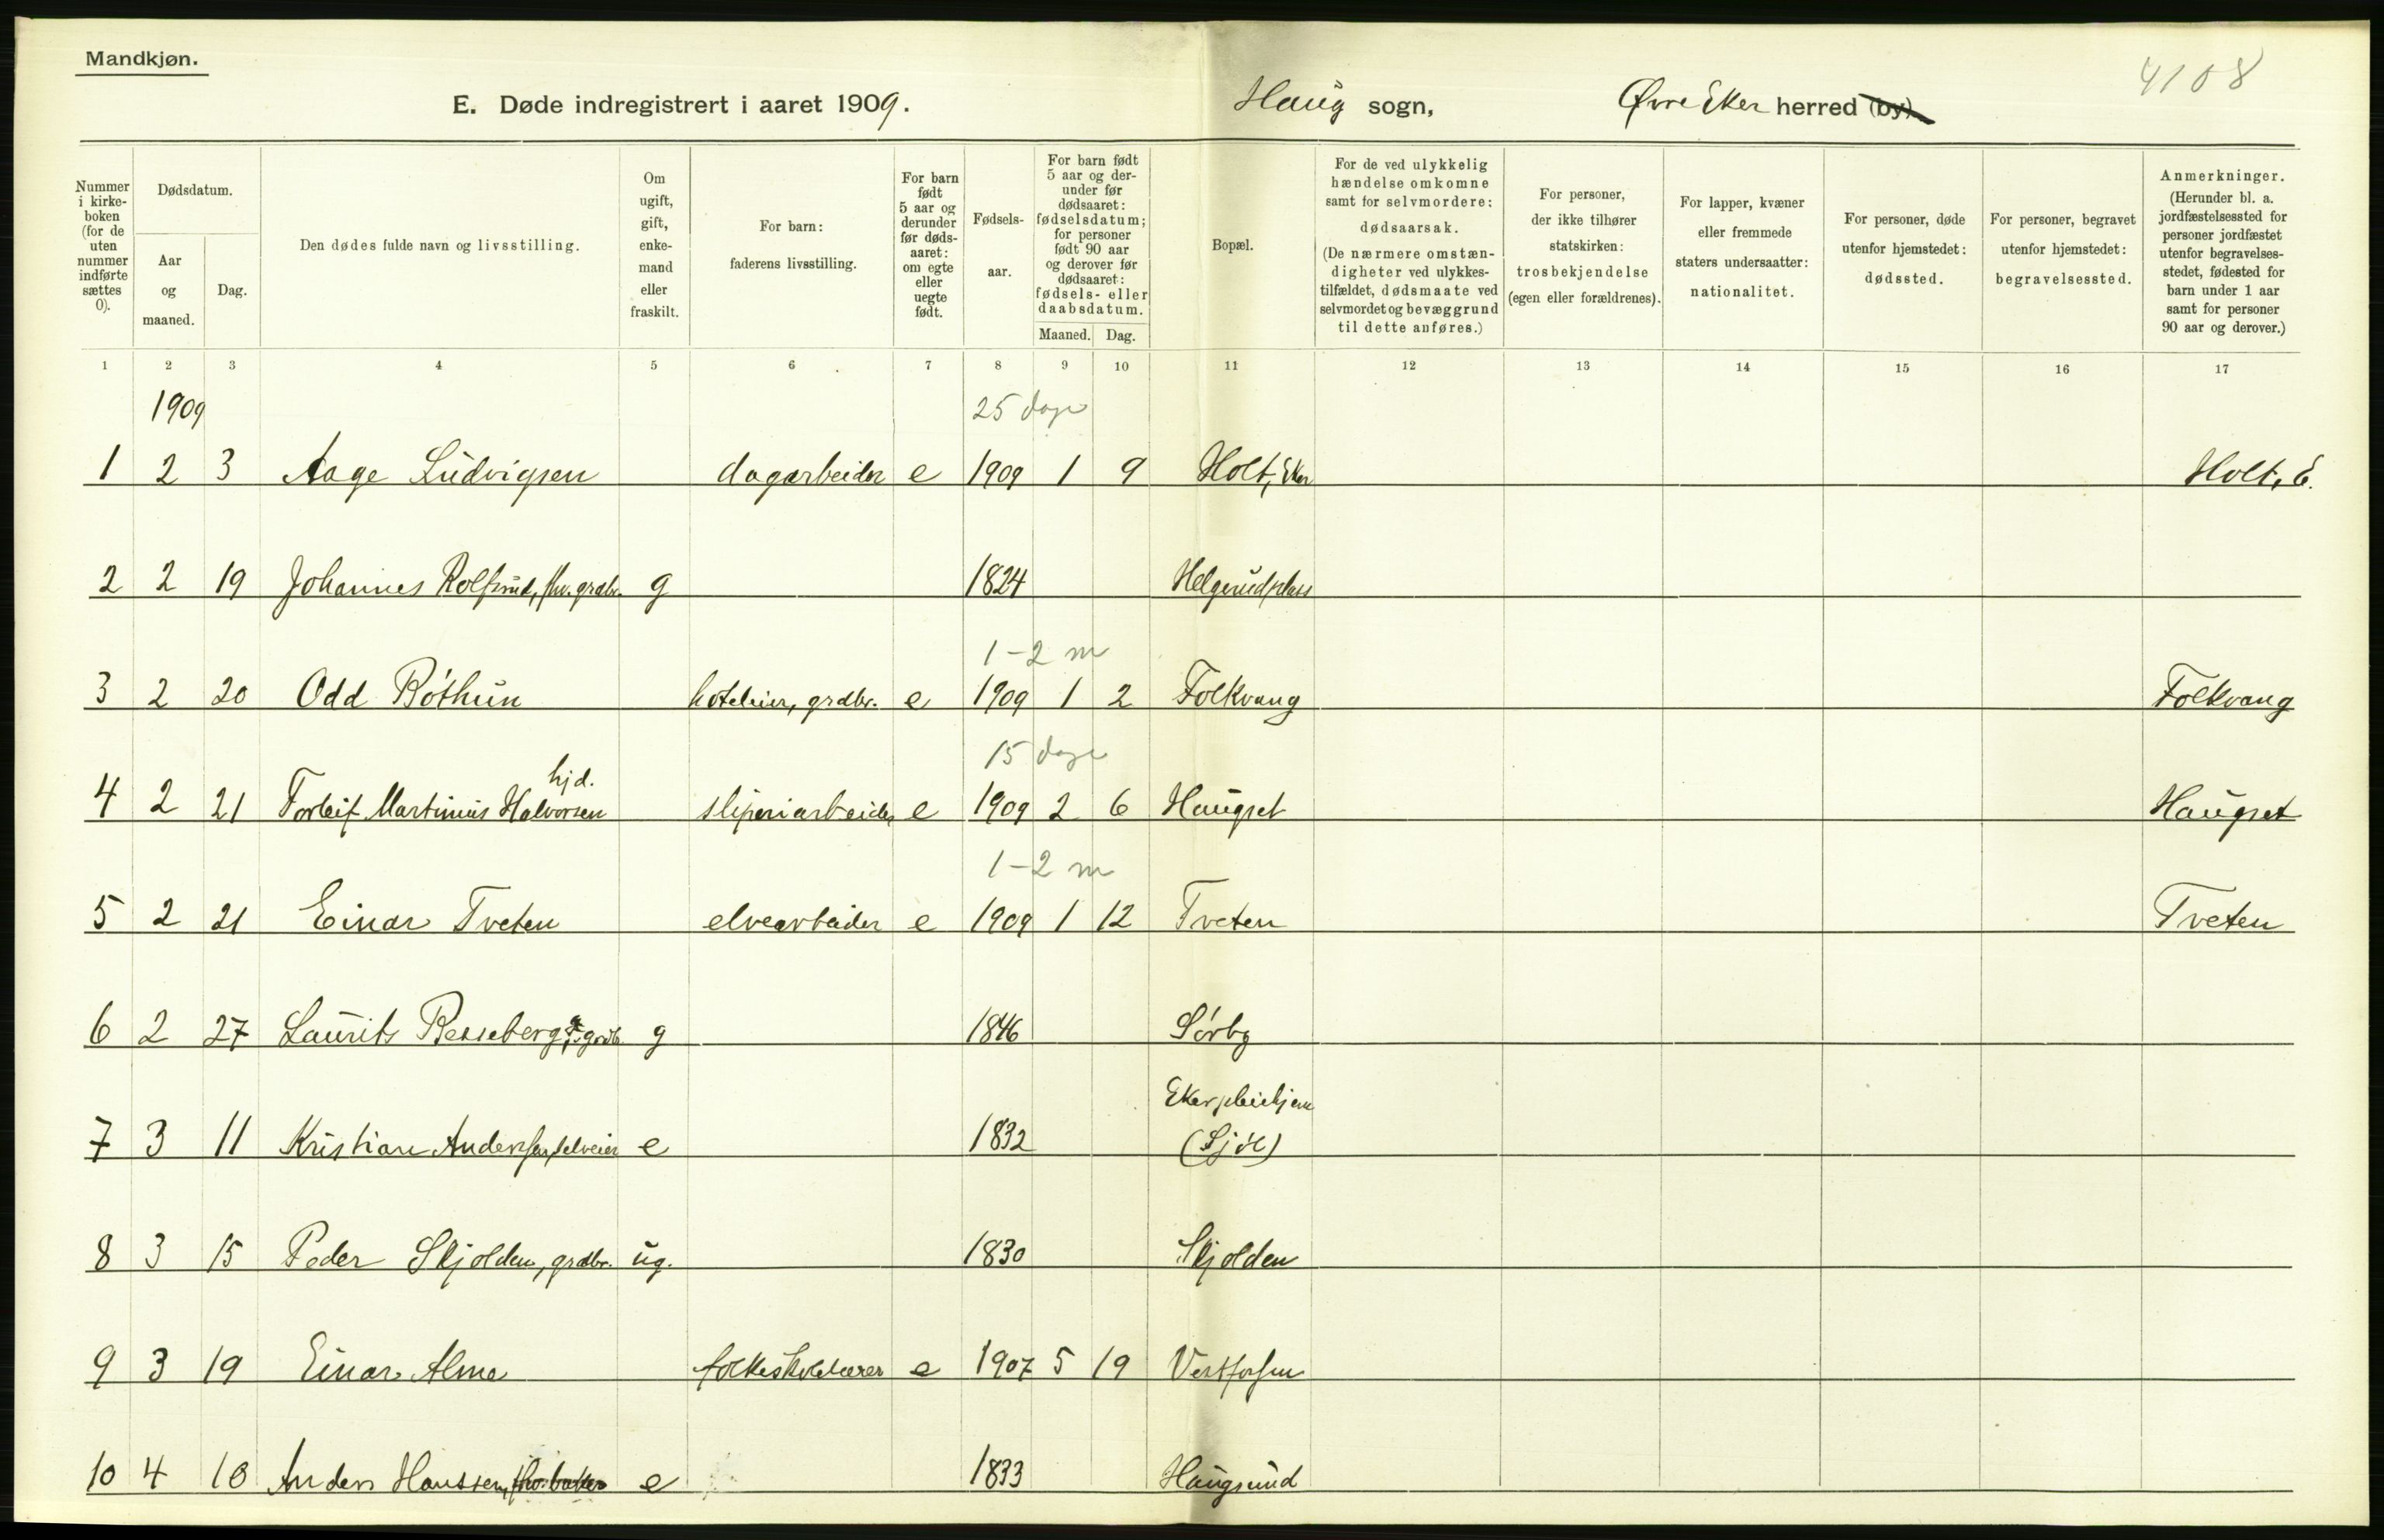 Mandkjøn.
4108
E. Døde indregistrert i aaret 1909.
Haug sogn,
Øvre Eker herred (by)
Nummer i kirke-boken (for de uten nummer indførte sættes 0).
Dødsdatum.
Aar og maaned.
Dag.
Den dødes fulde navn og livsstilling.
Om ugift, gift, enke-mand eller fraskilt.
For barn: faderens livsstilling.
For barn født 5 aar og derunder før døds-aaret: om egte eller uegte født.
Fødsels-aar.
For barn født 5 aar og der-under før dødsaaret: fødselsdatum; for personer født 90 aar og derover før dødsaaret: fødsels- eller daabsdatum.
Maaned.
Dag.
Bopæl.
For de ved ulykkelig hændelse omkomne samt for selvmordere: dødsaarsak. (De nærmere omstæn-digheter ved ulykkes-tilfældet, dødsmaate ved selvmordet og bevæggrund til dette anføres.)
For personer, der ikke tilhører statskirken: trosbekjendelse (egen eller forældrenes).
For lapper, kvæner eller fremmede staters undersaatter: nationalitet.
For personer, døde utenfor hjemstedet: dødssted.
For personer, begravet utenfor hjemstedet: begravelsessted.
Anmerkninger. (Herunder bl. a. jordfæstelsessted for personer jordfæstet utenfor begravelses-stedet, fødested for barn under 1 aar samt for personer 90 aar og derover.)
1 2 3 4 5 6 7 8 9 10 11 12 13 14 15 16 17
1909 25 dage
1 2 3 Aage Ludvigsen dagarbeider e 1909 1 9 Holt, Eker Holt, E.
2 2 19 Johannes Rolfsrud, fhv. grdbr. g 1824 Helgerudplass
1-2 m
3 2 20 Odd Röthun hoteleier, grdbr. e 1909 1 2 Folkvang Folkvang
hjd. 15 dage
4 2 21 Torleif Martinius Halvorsen sliperiarbeider e 1909 2 6 Haugset Haugset
1-2 m
5 2 21 Einar Tveten elvearbeider e 1909 1 12 Tveten Tveten
6 2 27 Laurits Besseberg, grdb. g 1846 Sørby
Eker pleiehjem
7 3 11 Kristian Andersen, selveier e 1832 (Sjøl)
8 3 15 Peder Skjolden, grdbr. ug. 1830 Skjolden
9 3 19 Einar Alme folkeskolelærer e 1907 5 19 Vestfossen
10 4 10 Anders Hanssen, fhv. baker e 1833 Haugsund